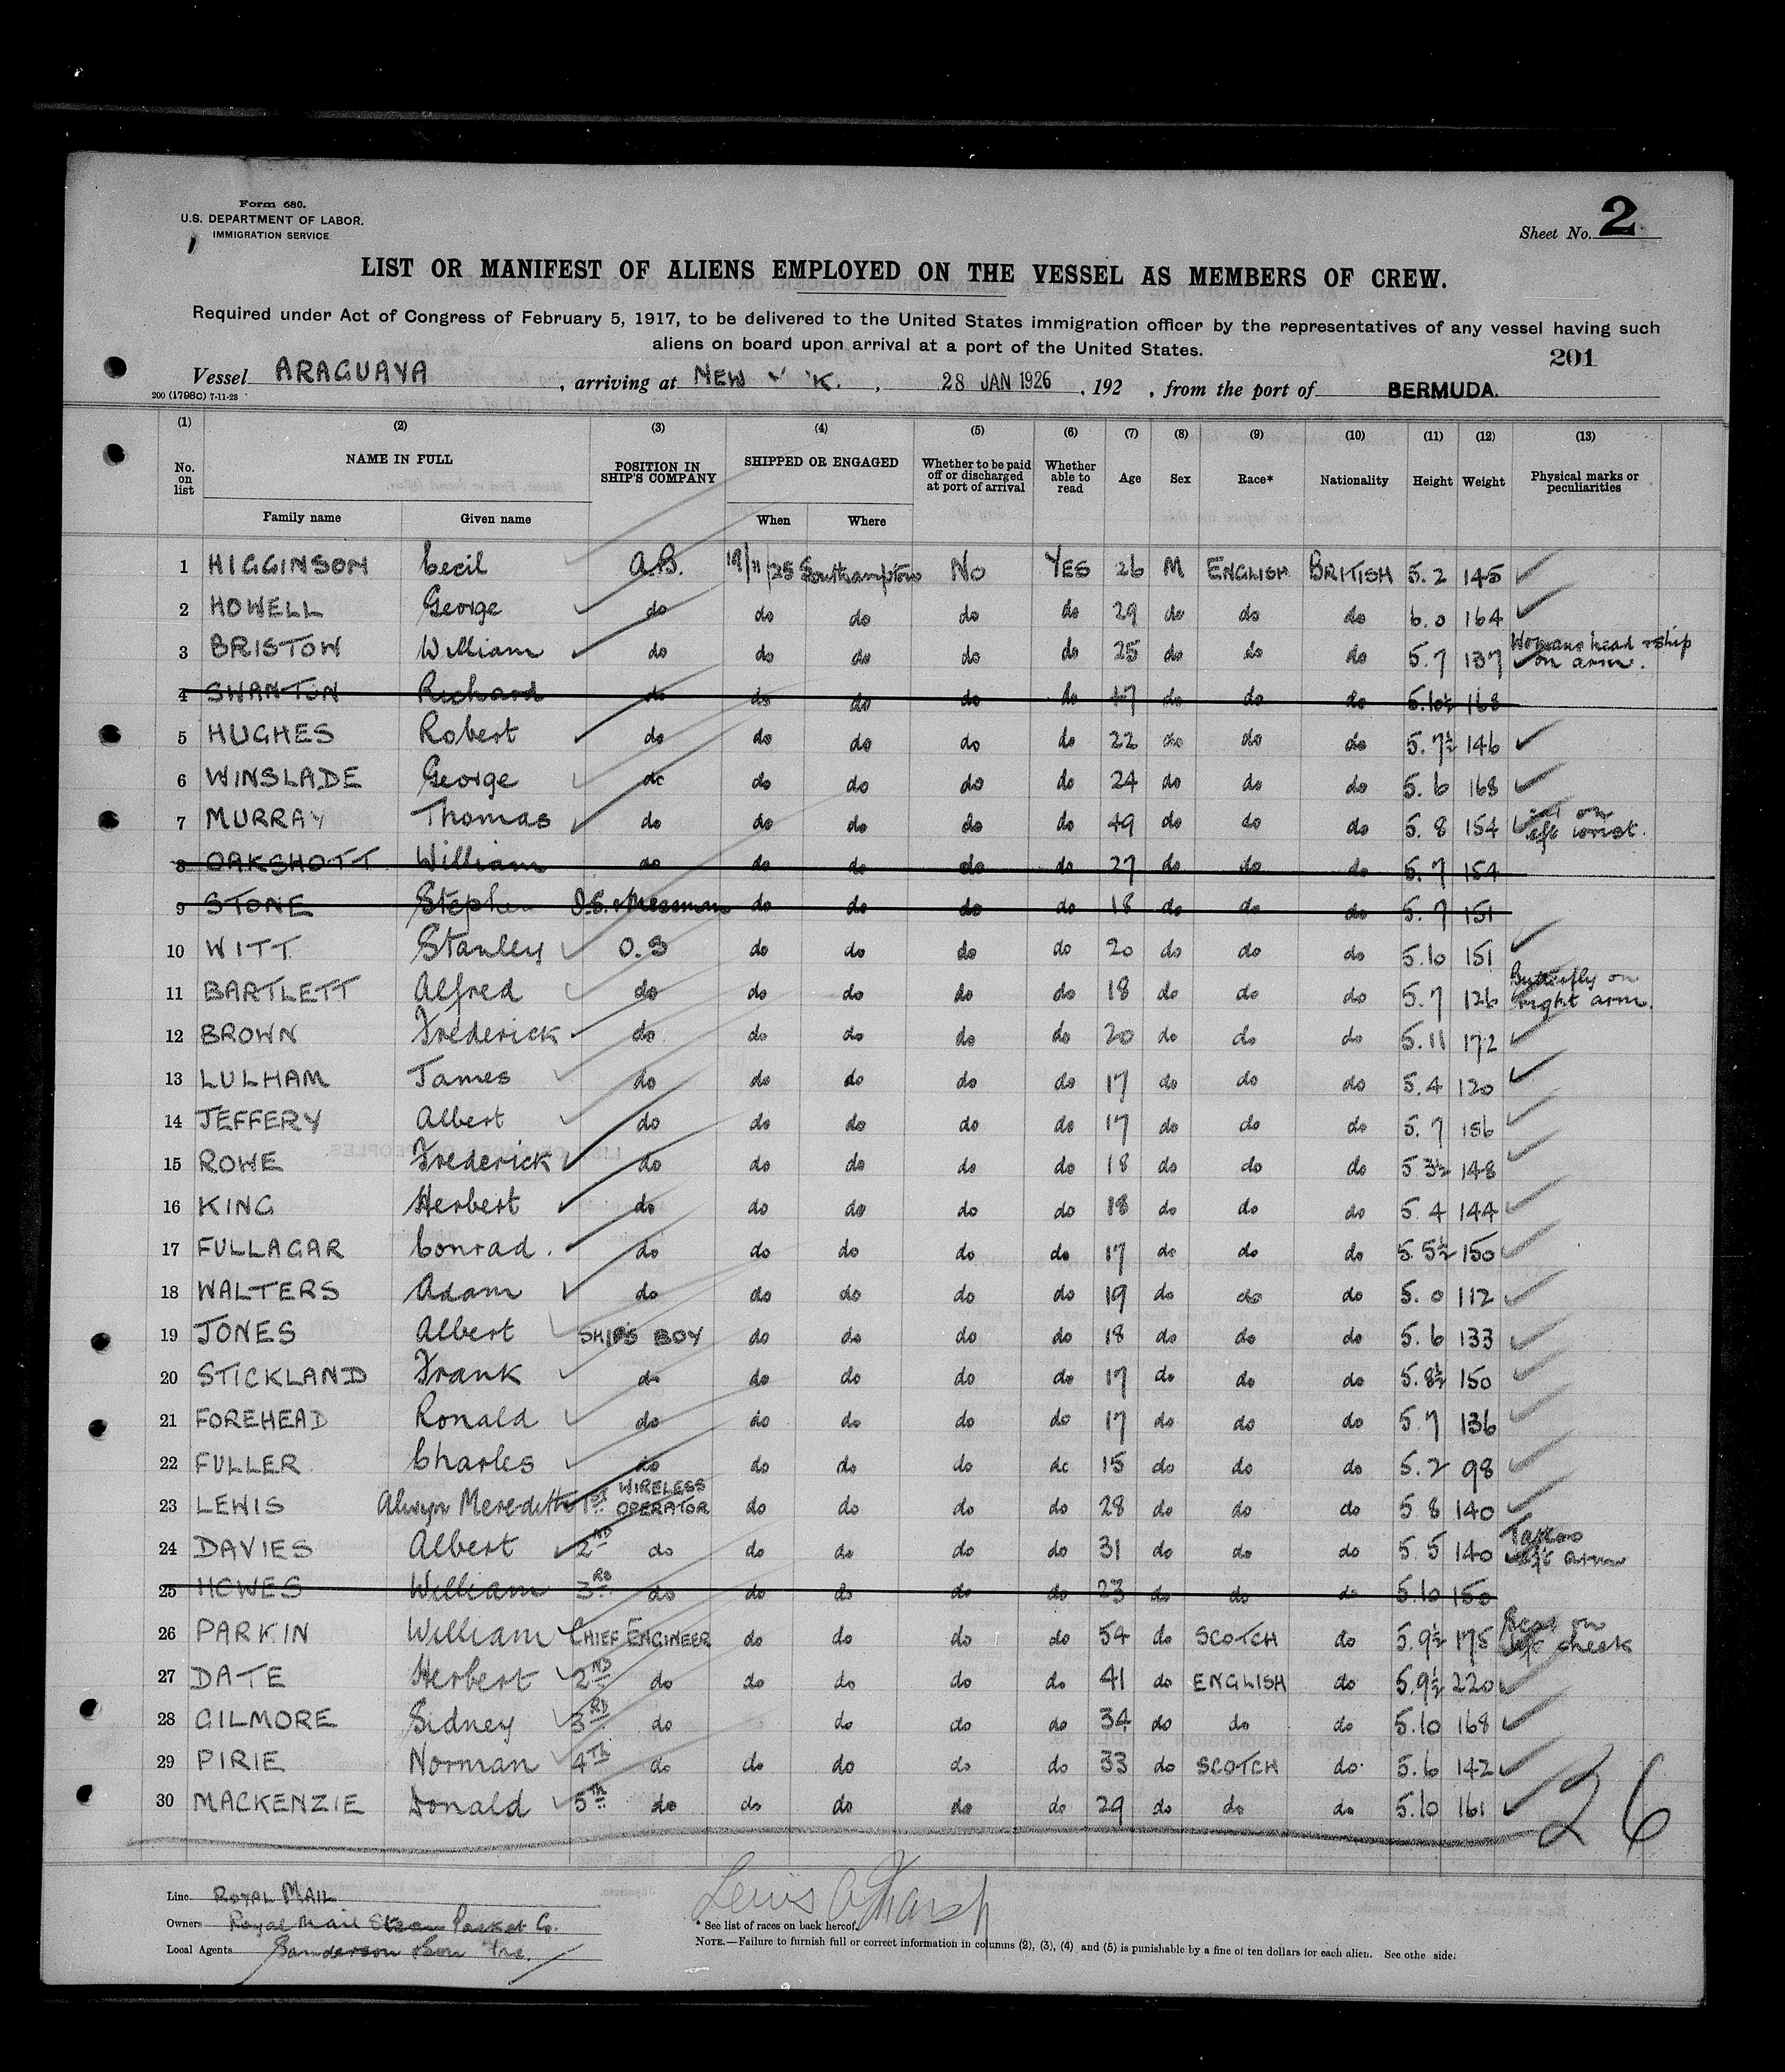 Form 680.
U.S. DEPARTMENT OF LABOR.
IMMIGRATION SERVICE
Sheet No. 2
LIST OR MANIFEST OF ALIENS EMPLOYED ON THE VESSEL AS MEMBERS OF CREW.
Required under Act of Congress of February 5, 1917, to be delivered to the United States immigration officer by the representatives of any vessel having such
aliens on board upon arrival at a port of the United States.
201
Vessel ARAGUAYA, arriving at NEW Y K., 28 JAN 1926, 192 , from the port of BERMUDA.
200 (1798C) 7-11-23
(1) (2) (3) (4) (5) (6) (7) (8) (9) (10) (11) (12) (13)
No. on list NAME IN FULL POSITION IN SHIP'S COMPANY SHIPPED OR ENGAGED Whether to be paid off or discharged at port of arrival Whether able to read Age Sex Race* Nationality Height Weight Physical marks or peculiarities
Family name Given name When Where
1 HIGGINSON Cecil A.B. 19/11/25 Southampton No YES 26 M ENGLISH BRITISH 5.2 145
2 HOWELL George do do do do do 29 do do do 6.0 164
3 BRISTOW William do do do do do 25 do do do 5.7 137 Womans head & ship on arm.
4 SWANTON Richard do do do do do 47 do do do 5.10½ 168
5 HUGHES Robert do do do do do 22 do do do 5.7½ 146
6 WINSLADE George do do do do do 24 do do do 5.6 168
7 MURRAY Thomas do do do do do 49 do do do 5.8 154 on left wrist.
8 OAKSHOTT William do do do do do 27 do do do 5.7 154
9 STONE Stephen O.S. & Messman do do do do 18 do do do 5.7 151
10 WITT Stanley O.S do do do do 20 do do do 5.10 151
11 BARTLETT Alfred do do do do do 18 do do do 5.7 126 Butterfly on right arm.
12 BROWN Frederick do do do do do 20 do do do 5.11 172
13 LULHAM James do do do do do 17 do do do 5.4 120
14 JEFFERY Albert do do do do do 17 do do do 5.7 156
15 ROWE Frederick do do do do do 18 do do do 5 3½ 148
16 KING Herbert do do do do do 18 do do do 5.4 144
17 FULLAGAR Conrad. do do do do do 17 do do do 5.5½ 150
18 WALTERS Adam do do do do do 19 do do do 5.0 112
19 JONES Albert SHIPS BOY do do do do 18 do do do 5.6 133
20 STICKLAND Frank do do do do do 17 do do do 5.8½ 150
21 FOREHEAD Ronald do do do do do 17 do do do 5.7 136
22 FULLER Charles do do do do do 15 do do do 5.2 98
23 LEWIS Alwyn Meredith 1ST WIRELESS OPERATOR do do do do 28 do do do 5 8 140
24 DAVIES Albert 2ND do do do do do 31 do do do 5.5 140 Tattoo left arm
25 HOWES William 3RD do do do do do 23 do do do 5.10 150
26 PARKIN William CHIEF ENGINEER do do do do 54 do SCOTCH do 5.9½ 175 Scar on left cheek
27 DATE Herbert 2ND do do do do do 41 do ENGLISH do 5.9½ 220
28 GILMORE Sidney 3RD do do do do 34 do do do 5.10 168
29 PIRIE Norman 4TH do do do do do 33 do SCOTCH do. 5.6 142
30 MACKENZIE Donald 5TH do do do do do 29 do do do 5.10 161
26
Line ROYAL MAIL
Owners Royal Mail Steam Packet Co.
Local Agents Sanderson & Son Inc.
Lewis A Marsh
* See list of races on back hereof.
NOTE.—Failure to furnish full or correct information in columns (2), (3), (4) and (5) is punishable by a fine of ten dollars for each alien. See othe side.